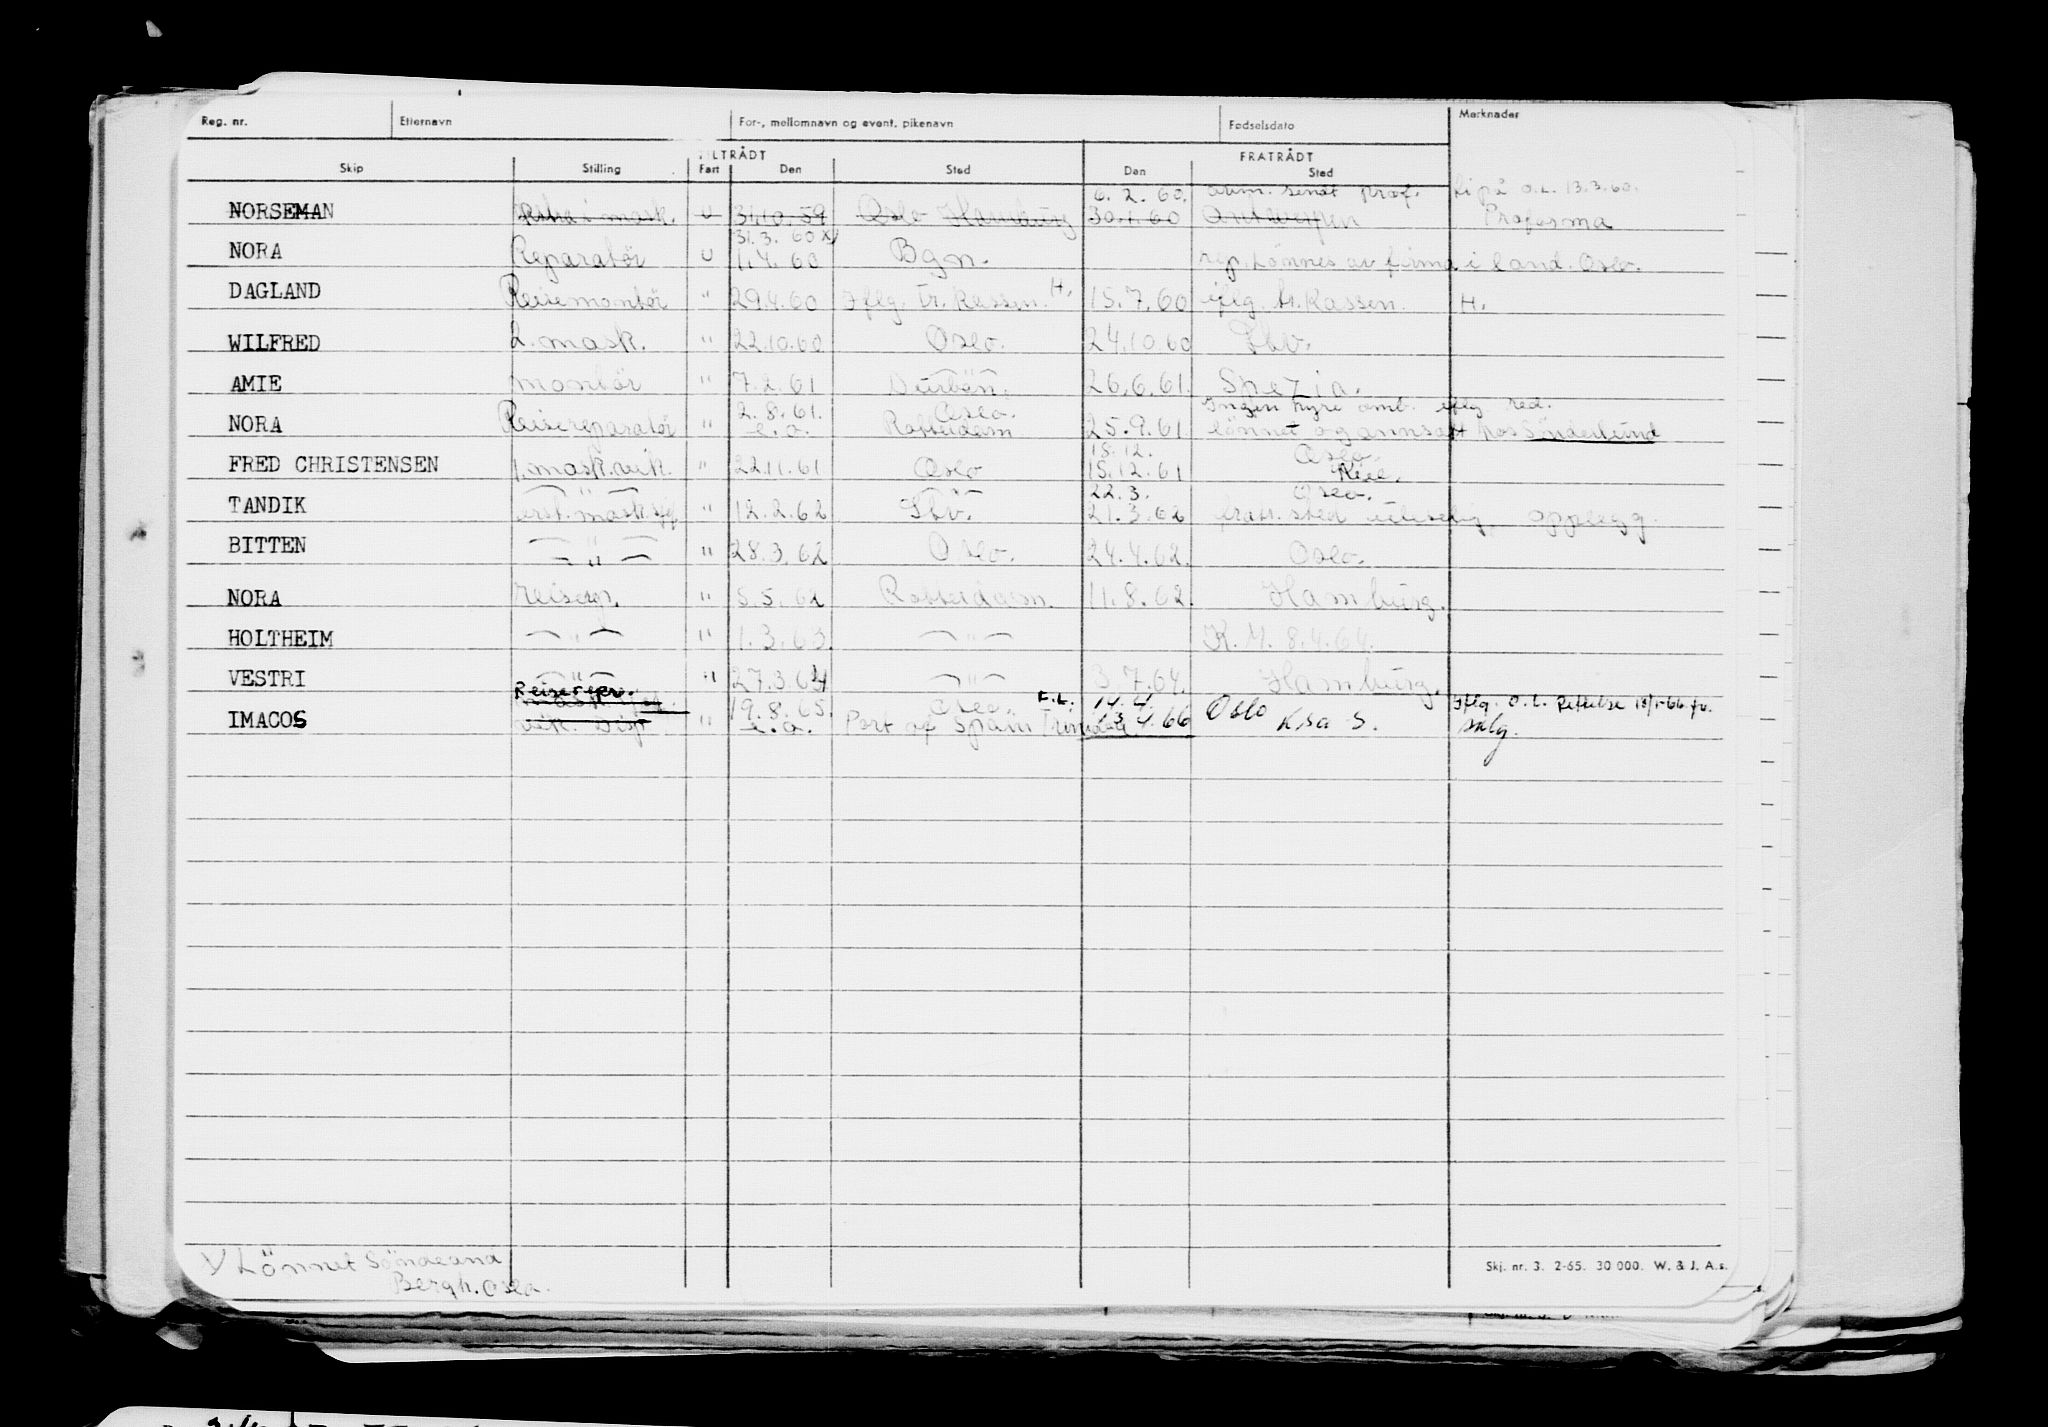 Reg. nr. Etternavn For-, mellomnavn og event. pikenavn Fødselsdato Merknader
TILTRÅDT FRATRÅDT
Skip Stilling Fart Den Sted Den Sted
6.2.60. prof. O.L. 13.3.60.
NORSEMAN i mask. U 31.10.59 Oslo Hamburg 30.1.60 Antwerpen Proforma
31.3.60 x)
NORA Reparatør U 1.4.60 Bgn. rep. lønnes av firma i land. Oslo.
DAGLAND Reisemontør " 29.4.60 Iflg. tr. kassen. H. 15.7.60 iflg. tr. kassen. H.
WILFRED 2. mask. " 22.10.60 Oslo. 24.10.60 Sbv.
AMIE montør " 7.2.61 Durban. 26.6.61. Spezia.
2.8.61. Oslo. Ingen hyre omb. iflg. red.
NORA Reisereparatør " e.o. Rotterdam 25.9.61 lönnet og annsatt hos Sönderlund
18.12. Oslo.
FRED CHRISTENSEN 1. mask. vik. " 22.11.61 Oslo 15.12.61 Kiel.
— " — — " — 22.3. Oslo.
TANDIK " 12.2.62 Sbv. 21.3.62 fratr. sted
BITTEN — " — " 28.3.62 Oslo. 24.4.62. Oslo.
NORA reisrep. " 5.5.62 Rotterdam. 11.8.62. Hamburg.
HOLTHEIM — " — " 1.3.63. — " — K.M. 8.4.64.
VESTRI — " — " 27.3.64 — " — 3.7.64. Hamburg.
Reiserepr. 19.8.65. Oslo. E.L. 14.4. Oslo Iflg. O.L.
IMACOS vik. Disp. " e.o. Port of Spain Trinidad 13.4.66 Ksa S. sklg.
x) Lönnet Søndeland
Bergh. Oslo.
Skj. nr. 3. 2-65. 30 000. W. & J. A.s.